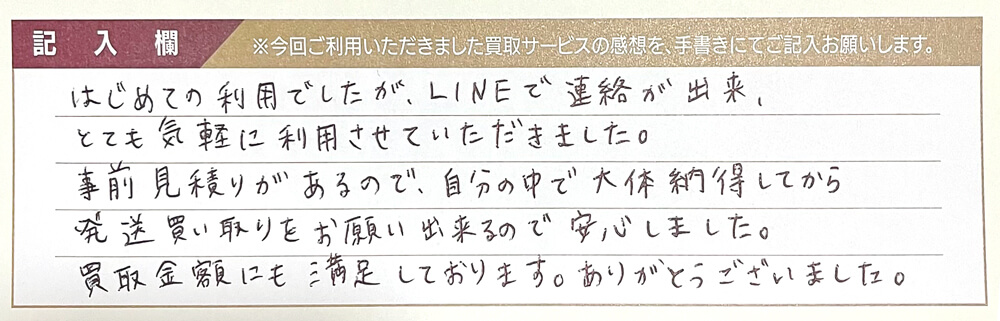 記入欄
※今回ご利用いただきました買取サービスの感想を、手書きにてご記入お願いします。
はじめての利用でしたが、LINEで連絡が出来、
とても気軽に利用させていただきました。
事前見積りがあるので、自分の中で大体納得してから
発送買い取りをお願い出来るので安心しました。
買取金額にも満足しております。ありがとうございました。